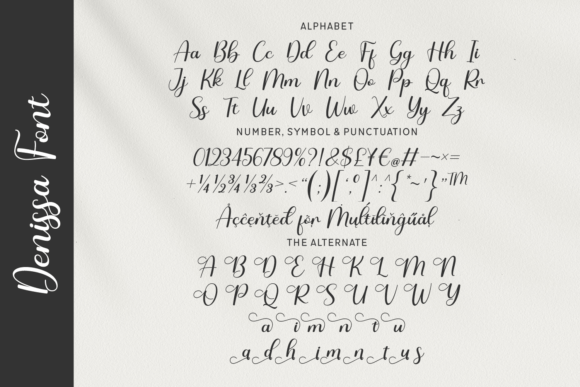 Denissa Font
ALPHABET
Aa Bb Cc Dd Ee Ff Gg Hh Ii
Jj Kk Ll Mm Nn Oo Pp Qq Rr
Ss Tt Uu Vv Ww Xx Yy Zz
NUMBER, SYMBOL & PUNCTUATION
0123456789%?!&$£¥€@#—~×=
+¼½¾⅓⅔><“(;)[°,°]^:^{*~'}”™
THE ALTERNATE
A B D E H K L M N
O P Q R S U V W Y
a i m n t u
a d h i m n t u s